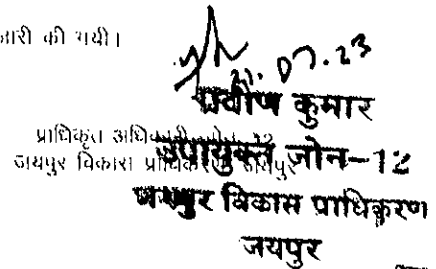 जारी की गयी।
21.07.23
प्रवीण कुमार
प्राधिकृत अधिकारी जोन-12
जयपुर विकास प्राधिकरण जयपुर
उपायुक्त जोन-12
जयपुर विकास प्राधिकरण
जयपुर